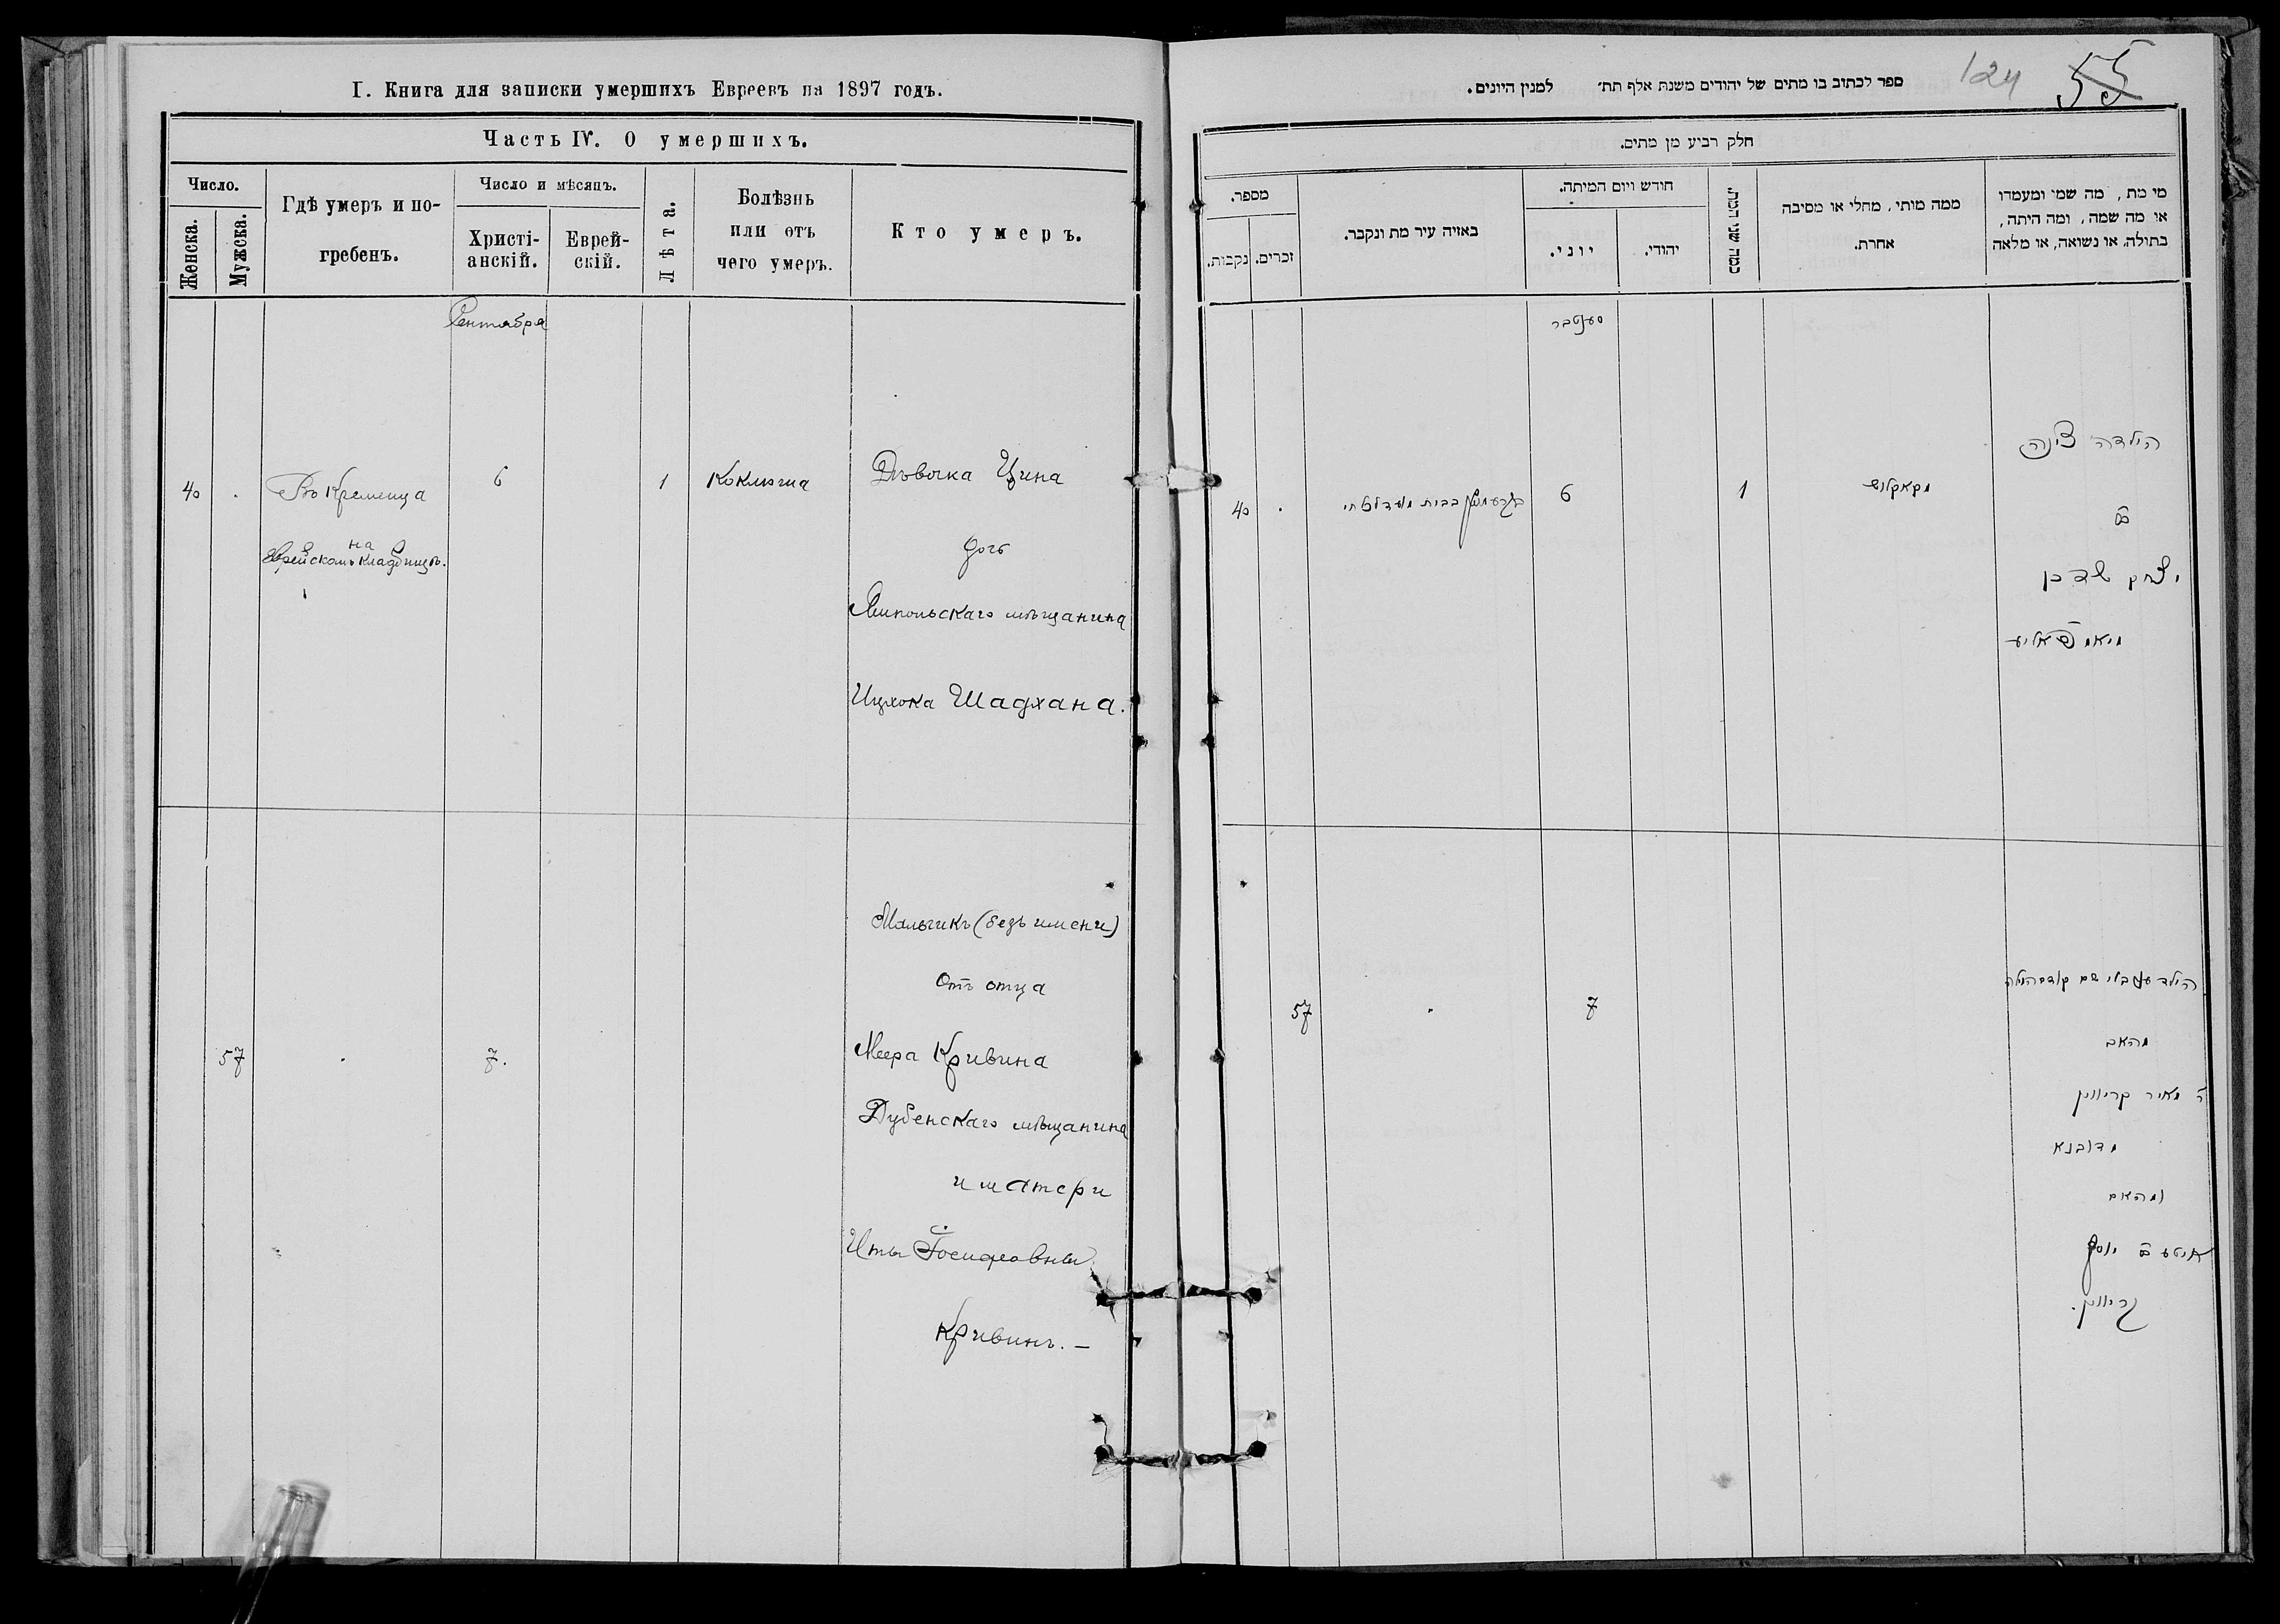 I. Книга для записки умершихъ Евреевъ на 1897 годъ.
Часть IV. О умершихъ.
Число.
Женска.
Мужска.
Гдѣ умеръ и по-
гребенъ.
Число и мѣсяцъ.
Христі-
анскій.
Еврей-
скій.
Лѣта.
Болѣзнь
или отъ
чего умеръ.
Кто умеръ.
Сентября
40
Въ Кременца
на
Еврейскомъ кладбищѣ.
6
1
Коклюша
Дѣвочка Цина
дочь
Ямпольскаго мѣщанина
Ицхока Шадхана.
57
7.
Мальчикъ (безъ имени)
Отъ отца
Меера Кривина
Дубенскаго мѣщанина
и матери
Иты Іосифовны
Кривинъ. —
124
55
ספר לכתוב בו מתים של יהודים משנת אלף תת׳ למנין היונים.
חלק רביע מן מתים.
מספר.
נקבות.
זכרים.
באזיה עיר מת ונקבר.
חודש ויום המיתה.
יוני.
יהודי.
כמה שני המת.
ממה מותי, מחלי או מסיבה
אחרת.
מי מת, מה שמי ומעמדו
או מה שמה, ומה היתה,
בתולה, או נשואה, או מלאה
סענטבר
40
6
1
הילדה צינה
בת
יצחק שדכן
57
7
הילד
מהאב
ר׳ מאיר קריווין
מדובנא
ומהאם
איטע בת יוסף
קריווין.